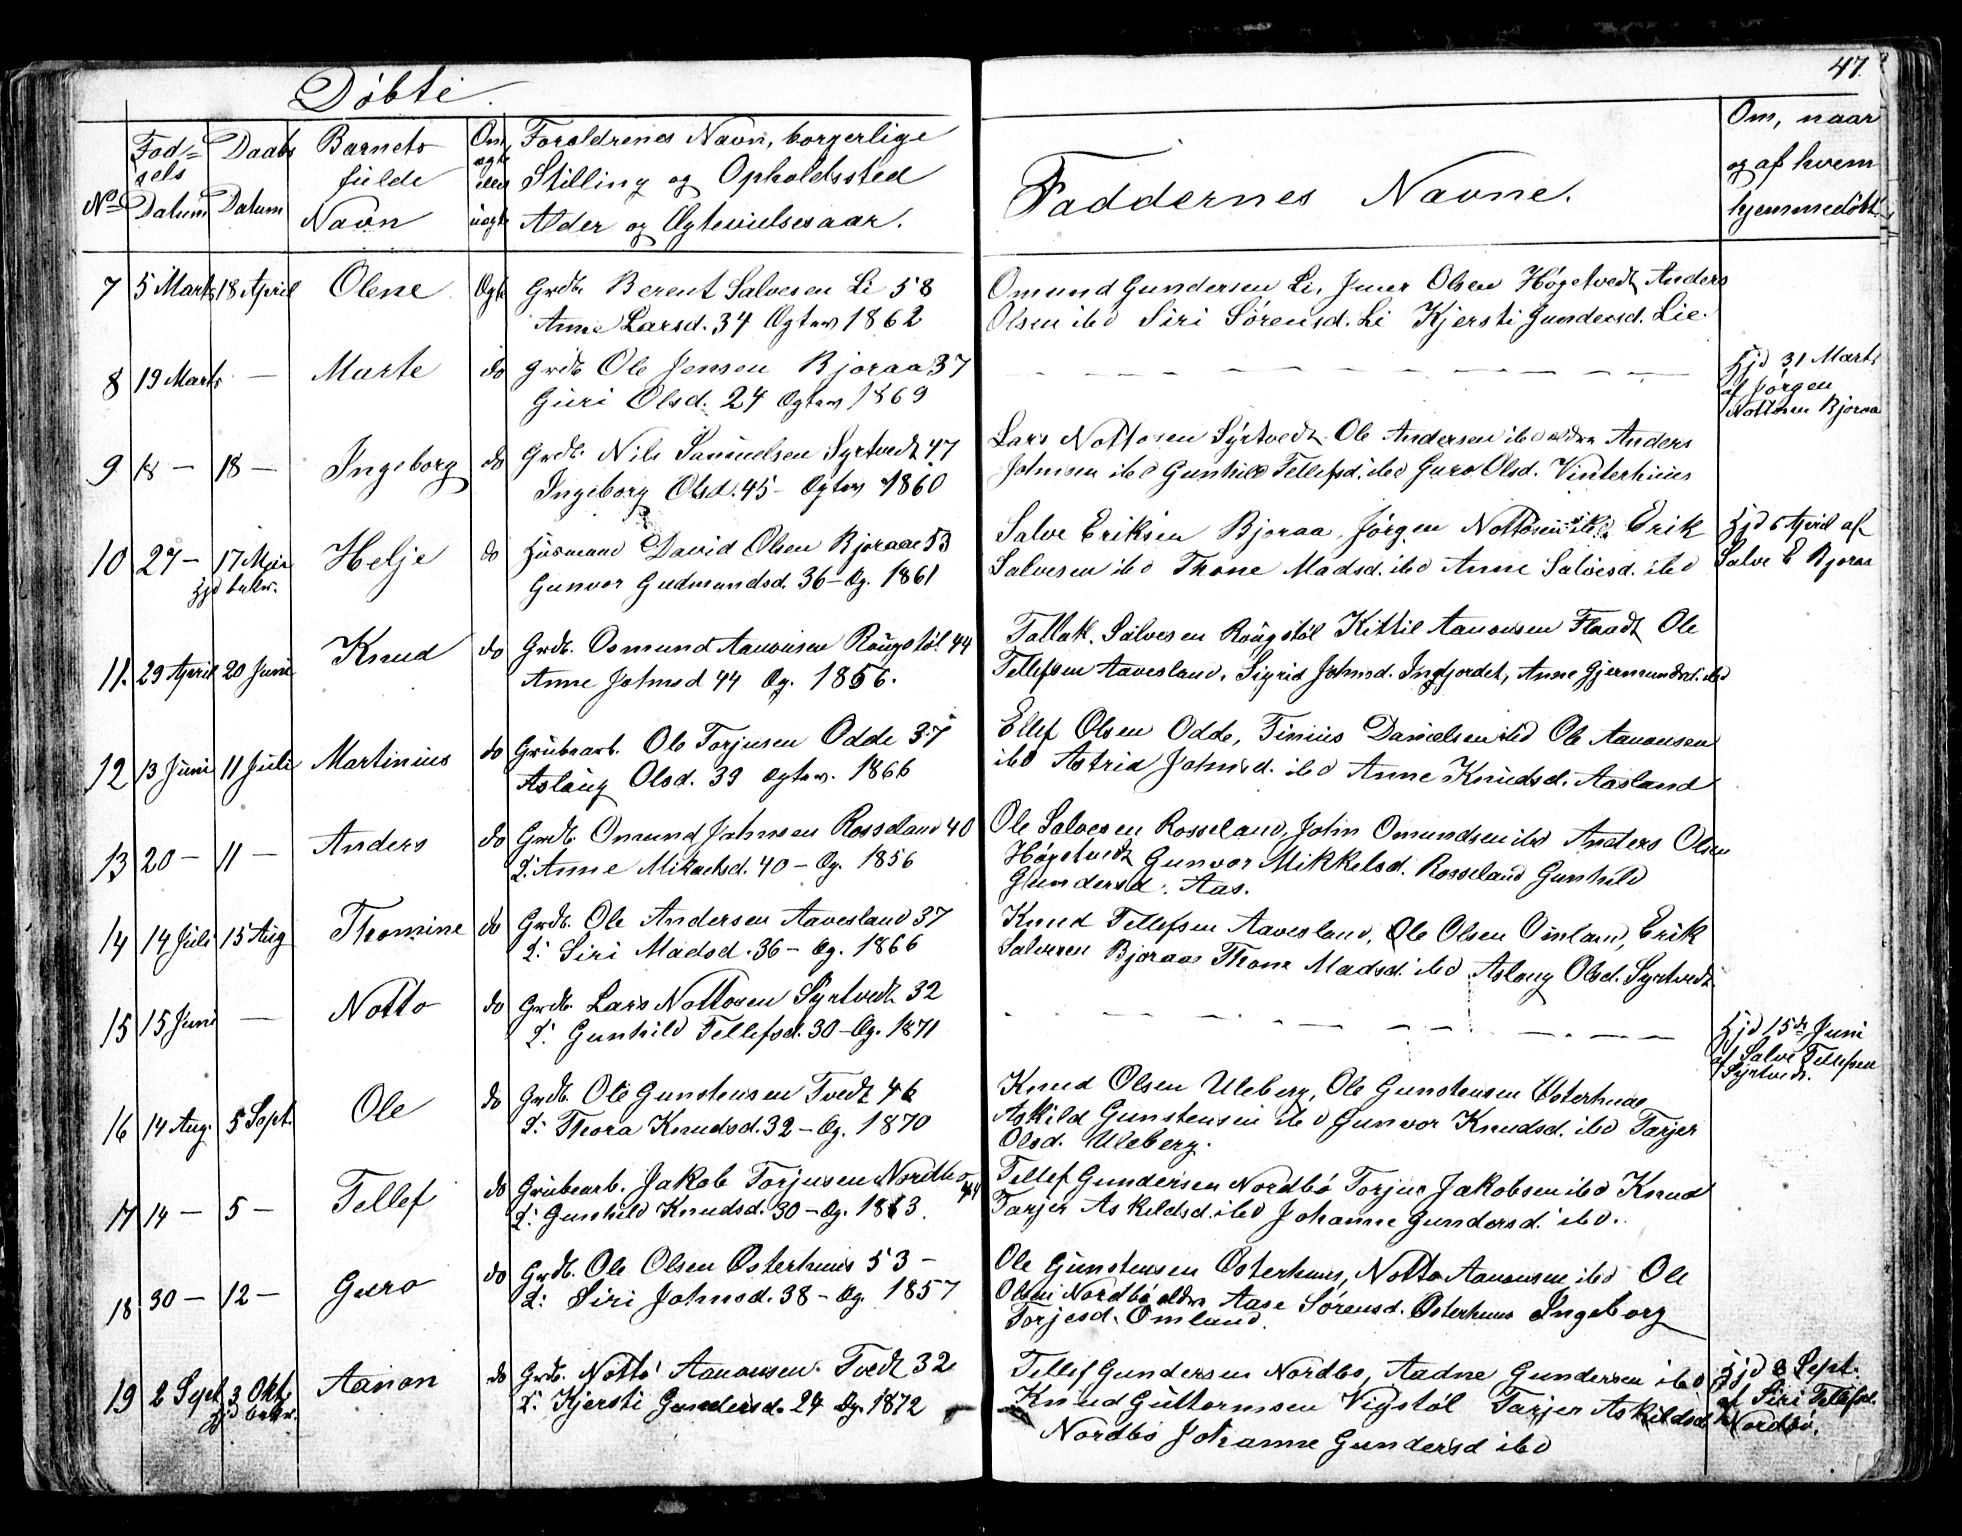 47.
Døbte.
No
Fød-
sels
Datum
Daabs
Datum
Barnets
fulde
Navn
Om
ægte
eller
uægte
Forældrenes Navn, borgerlige
Stilling og Opholdssted
Alder og Ægtevielsesaar.
Faddernes Navne.
Om, naar
og af hvem
hjemmedøbt
7 5 Marts 18 April Olene Ægte Grdb. Berent Salvesen Li 58
Anne Larsd. 34 Ægtev 1862
Omund Gundersen Li, Juer Olsen Høgetvedt Anders
Olsen ibd Siri Sörensd. Li Kjersti Gundersd. Lie.
8 19 Marts — Marte do grdb Ole Jensen Bjoraa 37
Guri Olsd. 24 Ægtev 1869
— — — — — — — — — —
Hjd 31 Marts
af Jørgen
Nottosen Bjoraa
9 18 — 18 — Ingeborg do Grdb. Nils Samuelsen Syrtvedt 47
Ingeborg Olsd. 45 - Ægtev 1860
Lars Nottosen Syrtvedt Ole Andersen ibd ældre Anders
Johnsen ibd Gunhild Tellefsd. ibd Guro Olsd. Vinterhuus
10 27 — 17 Mai Helje do Husmand David Olsen Bjoraae 53
Hjd bekr.
Gunvor Gudmundsd. 36 - Æg. 1861
Salve Eriksen Bjoraa Jørgen Nottosen ibd Erik
Salvesen ibd Thone Madsd. ibd Anne Salvesd. ibd
Hjd 6 April af
Salve E Bjoraa
11. 29 April 20 Juni Knud do Grdb. Osmund Aanonsen Røugstøl 44
Anne Johnsd 44 Æg. 1856.
Tallak. Salvesen Røugstøl Kittil Aanonsen Flaadt Ole
Tellefsen Aavesland, Sigrid Johnsd. Ingfjordet, Anne Gjermundsd. ibd
12 13 Juni 11 Juli Martinius do Grubearb. Ole Torjusen Odde 37
Aslaug Olsd. 39 Ægtev. 1866
Ellef Olsen Odde, Tinius Danielsen ibd Ole Aanonsen
ibd Astrid Johnsd. ibd Anne Knudsd. Aasland
13 20 — 11 — Anders do Grdb. Omund Johnsen Rosseland 40
X: Anne Mikaelsd. 40 - Æg. 1856
Ole Salvesen Rosseland, John Omundsen ibd Anders Olsen
Høgetvedt Gunvor Mikkelsd. Rosseland Gunhild
Gundersd. Aas.
14 14 Juli 15 Aug Thomine do Grdb. Ole Andersen Aavesland 37
X: Siri Madsd. 36 - Æg. 1866
Knud Tellefsen Aavesland, Ole Olsen Omland, Erik
Salvesen Bjoraas Thone Madsd. ibd Aslaug Olsd. Syrtvedt
15 15 Juni — Notto do Grdb. Lars Nottosen Syrtvedt 32
X: Gunhild Tellefsd. 30 - Æg. 1871
— — — — — — — — — —
Hjd 15de Juni
af Salve Tellefsen
Syrtvedt.
16 14 Aug. 5 Sept. Ole do Grdb. Ole Gunstensen Tvedt 46
X: Thora Knudsd. 32 - Æg. 1870
Knud Olsen Uleberg, Ole Gunstensen Østerhuus
Askild Gunstensen ibd Gunvor Knudsd. ibd Tarjer
Olsd. Uleberg.
17 14 — 5 — Tellef do Grubearb. Jakob Torjusen Nordbø 44
X: Gunhild Knudsd. 30 - Æg. 1863.
Tellef Gundersen Nordbö Torjus Jakobsen ibd Knud
Tarjer Askildsd. ibd Johanne Gundersd. ibd.
18 30 — 12 — Guro do Grdb. Ole Olsen Østerhuus 53 -
X: Siri Johnsd. 38 - Æg. 1857
Ole Gunstensen Østerhuus, Notto Aanonsen ibd Ole
Olsen Nordbö ældre Aase Sörensd. Østerhuus Ingeborg
Torjesd. Omland.
19 2 Sept. 3 Okt. Aanon do Grdb. Notto Aanonsen Tvedt 32
Hjd bekr.
X: Kjersti Gundersd. 24 Æg. 1872
Tellef Gundersen Nordbo, Aadne Gundersen ibd
Knud Guttormsen Vigstøl Tarjer Askildsd
Nordbö Johanne Gundersd ibd
Hjd 8 Sept.
af Siri Tellefsd.
Nordbö.